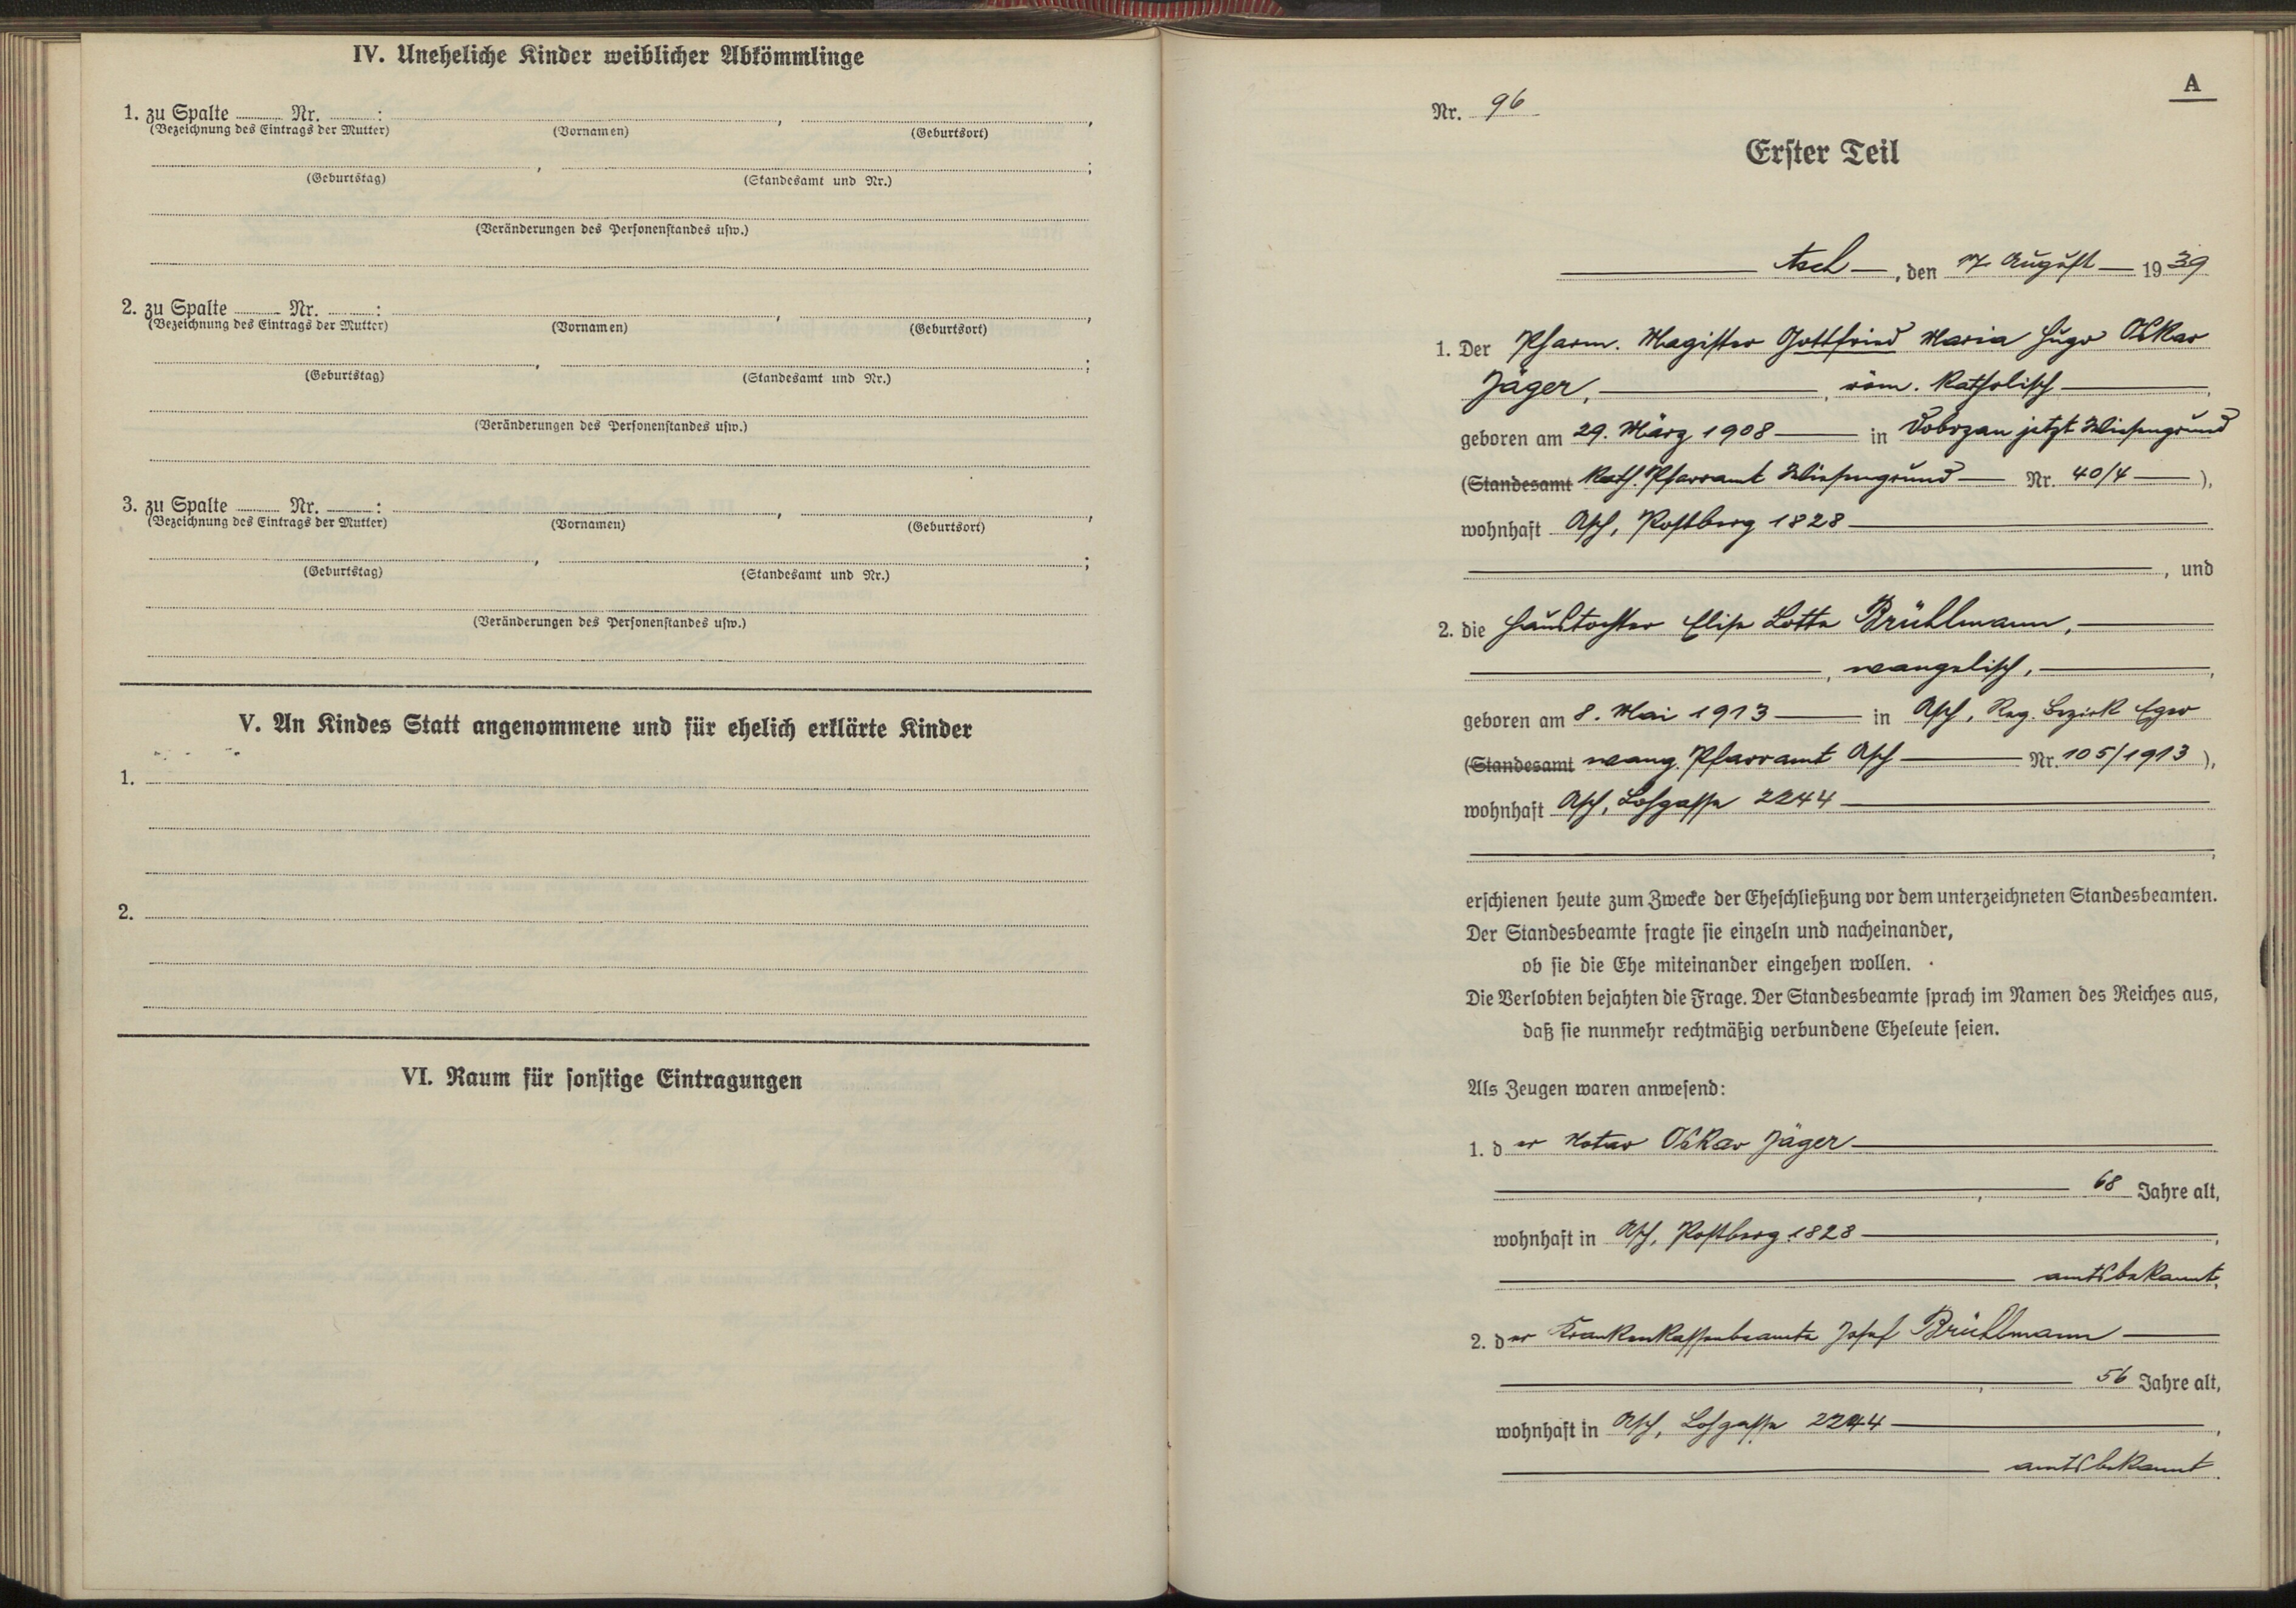 IV. Uneheliche Kinder weiblicher Abkömmlinge
1. zu Spalte Nr. : , ,
(Bezeichnung des Eintrags der Mutter) (Vornamen) (Geburtsort)
, ;
(Geburtstag) (Standesamt und Nr.)
(Veränderungen des Personenstandes usw.)
2. zu Spalte Nr. : , ,
(Bezeichnung des Eintrags der Mutter) (Vornamen) (Geburtsort)
, ;
(Geburtstag) (Standesamt und Nr.)
(Veränderungen des Personenstandes usw.)
3. zu Spalte Nr. : , ,
(Bezeichnung des Eintrags der Mutter) (Vornamen) (Geburtsort)
, ;
(Geburtstag) (Standesamt und Nr.)
(Veränderungen des Personenstandes usw.)
V. An Kindes Statt angenommene und für ehelich erklärte Kinder
1.
2.
VI. Raum für sonstige Eintragungen
A
Nr. 96
Erster Teil
Asch, den August 1939
1. Der Pharm. Magister Gottfried Maria Hugo Oskar
Jäger, , röm. katholisch,
geboren am 29. März 1908 in Dobrzan jetzt Wiesengrund
(Standesamt Kath. Pfarramt Wiesengrund Nr. 40/4),
wohnhaft Asch, Postberg 1828
, und
2. die Haustochter Elise Lotte Brühlmann,
, evangelisch, ,
geboren am 8. Mai 1913 in Asch, Reg. Bezirk Eger
(Standesamt evang. Pfarramt Asch Nr. 105/1913),
wohnhaft Asch, Lohgasse 2244
,
erschienen heute zum Zwecke der Eheschließung vor dem unterzeichneten Standesbeamten.
Der Standesbeamte fragte sie einzeln und nacheinander,
ob sie die Ehe miteinander eingehen wollen.
Die Verlobten bejahten die Frage. Der Standesbeamte sprach im Namen des Reiches aus,
daß sie nunmehr rechtmäßig verbundene Eheleute seien.
Als Zeugen waren anwesend:
1. der Notar Oskar Jäger
, 68 Jahre alt,
wohnhaft in Asch, Postberg 1828,
amtsbekannt,
2. der Krankenkassenbeamte Josef Brühlmann
, 56 Jahre alt,
wohnhaft in Asch, Lohgasse 2244,
amtsbekannt.